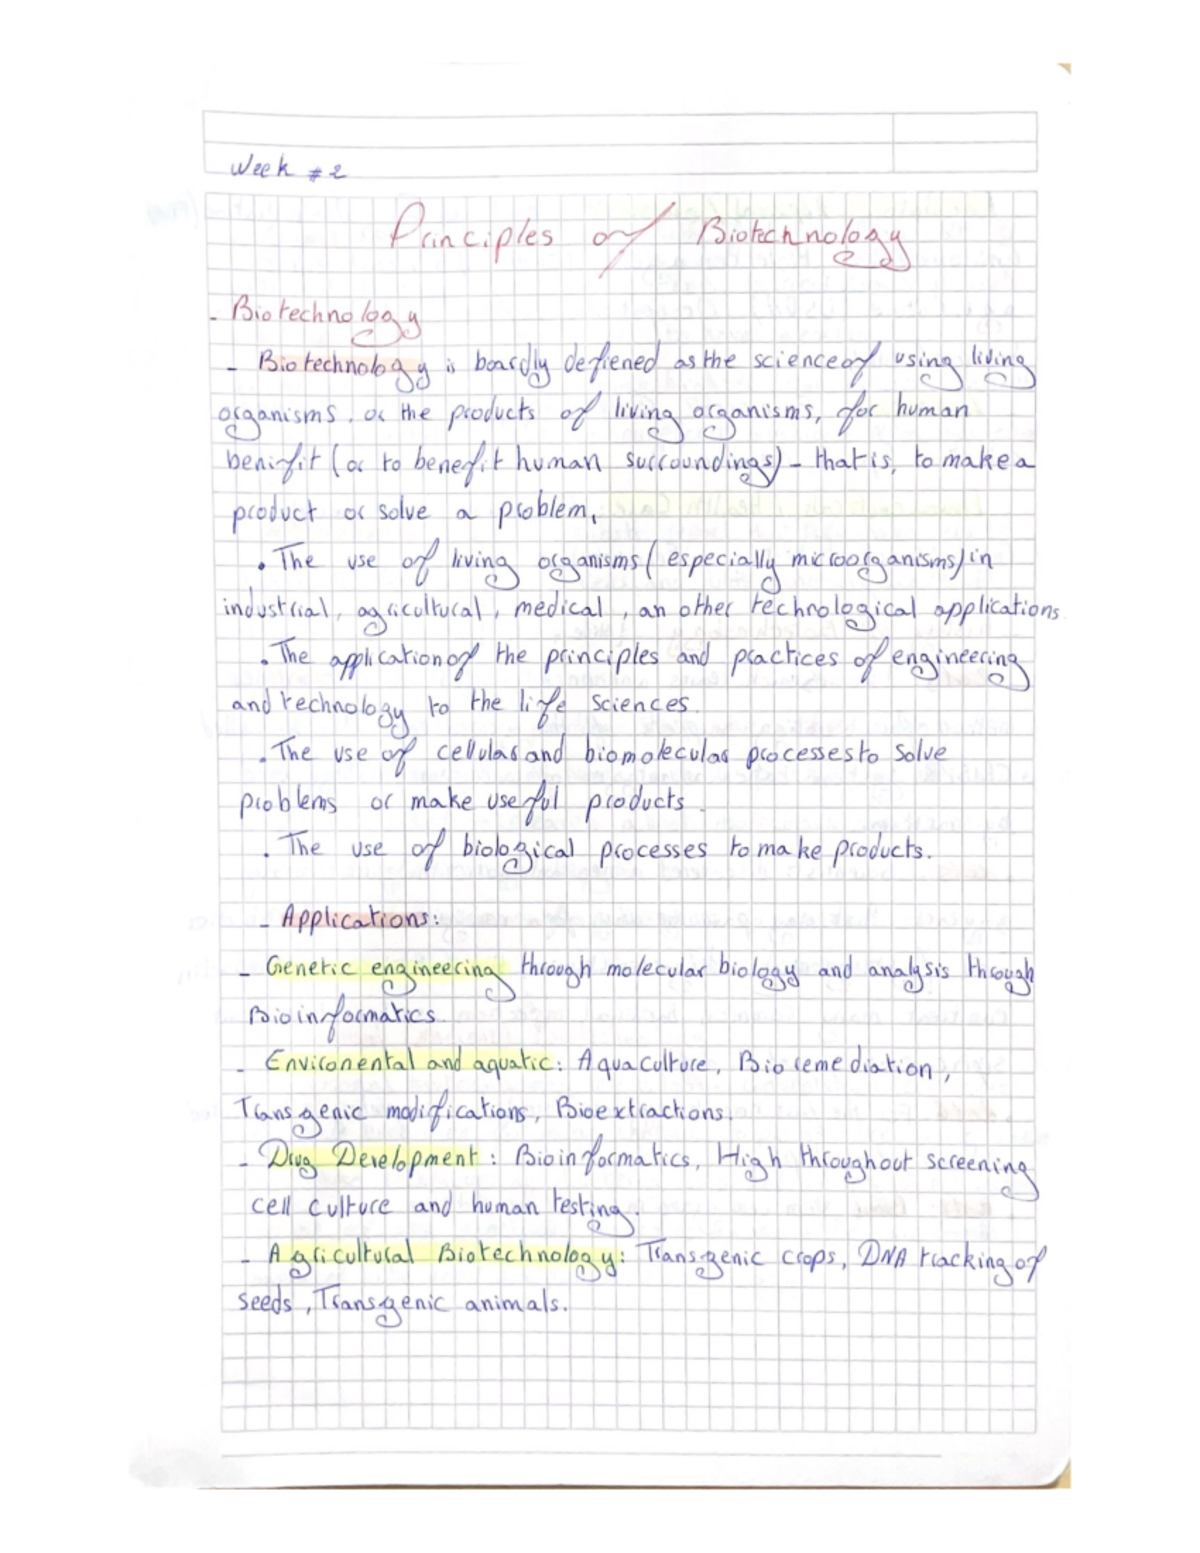 Week # 2
Principles of Biotechnology
- Biotechnology
- Biotechnology is boardly defiened as the science of using living
organisms, or the products of living organisms, for human
benifit (or to benefit human surroundings) - that is, to make a
product or solve a problem,
• The use of living organisms (especially microorganisms) in
industrial, agricultural, medical, an other technological applications.
• The application of the principles and practices of engineering
and technology to the life sciences.
• The use of cellular and biomolecular processes to solve
problems or make useful products.
• The use of biological processes to make products.
- Applications:
- Genetic engineering through molecular biology and analysis through
Bioinformatics.
- Environental and aquatic: Aquaculture, Bioremediation,
Transgenic modifications, Bioextractions.
- Drug Development: Bioinformatics, High throughout screening
cell culture and human testing.
- Agricultural Biotechnology: Transgenic crops, DNA tracking of
seeds, Transgenic animals.